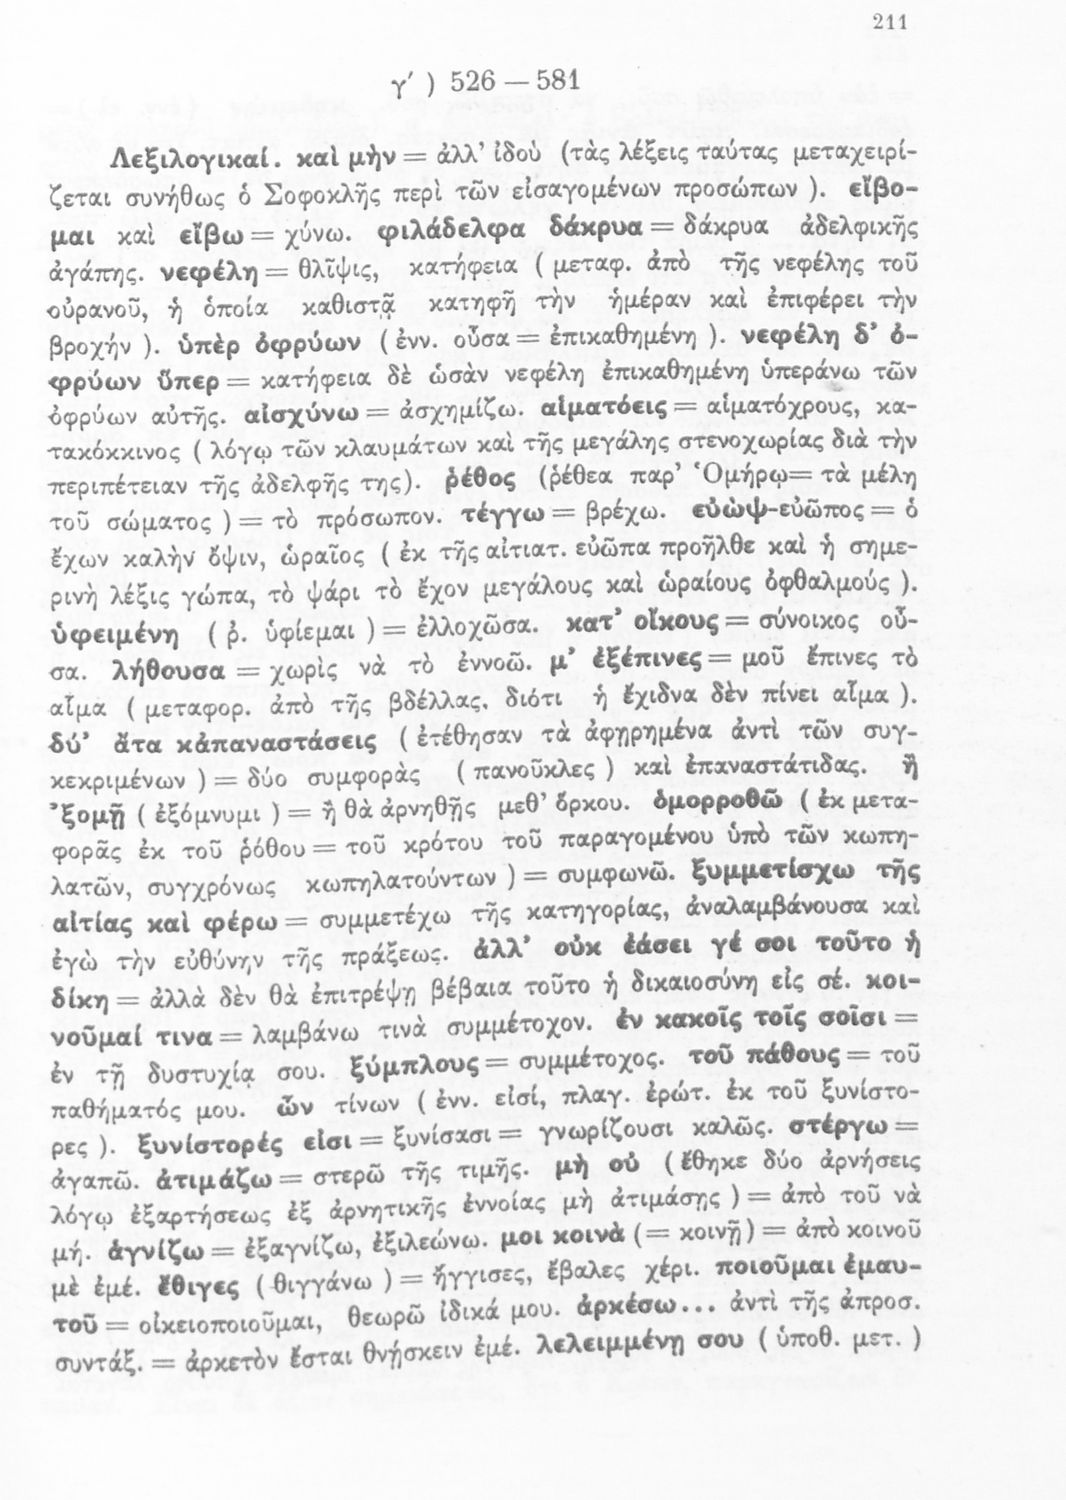 211
γ′ ) 526 — 581
Λεξιλογικαί. καὶ μὴν = ἀλλ’ ἰδοὺ (τὰς λέξεις ταύτας μεταχειρί-
ζεται συνήθως ὁ Σοφοκλῆς περὶ τῶν εἰσαγομένων προσώπων ). εἴβο-
μαι καὶ εἴβω = χύνω. φιλάδελφα δάκρυα = δάκρυα ἀδελφικῆς
ἀγάπης. νεφέλη = θλῖψις, κατήφεια ( μεταφ. ἀπὸ τῆς νεφέλης τοῦ
οὐρανοῦ, ἡ ὁποία καθιστᾷ κατηφῆ τὴν ἡμέραν καὶ ἐπιφέρει τὴν
βροχήν ). ὑπὲρ ὀφρύων ( ἐνν. οὖσα = ἐπικαθημένη ). νεφέλη δ’ ὀ-
φρύων ὕπερ = κατήφεια δὲ ὡσὰν νεφέλη ἐπικαθημένη ὑπεράνω τῶν
ὀφρύων αὐτῆς. αἰσχύνω = ἀσχημίζω. αἱματόεις = αἱματόχρους, κα-
τακόκκινος ( λόγῳ τῶν κλαυμάτων καὶ τῆς μεγάλης στενοχωρίας διὰ τὴν
περιπέτειαν τῆς ἀδελφῆς της). ῥέθος (ῥέθεα παρ’ Ὁμήρῳ= τὰ μέλη
τοῦ σώματος ) = τὸ πρόσωπον. τέγγω = βρέχω. εὐὼψ-εὐῶπος = ὁ
ἔχων καλὴν ὄψιν, ὡραῖος ( ἐκ τῆς αἰτιατ. εὐῶπα προῆλθε καὶ ἡ σημε-
ρινὴ λέξις γώπα, τὸ ψάρι τὸ ἔχον μεγάλους καὶ ὡραίους ὀφθαλμούς ).
ὑφειμένη ( ῥ. ὑφίεμαι ) = ἐλλοχῶσα. κατ’ οἴκους = σύνοικος οὖ-
σα. λήθουσα = χωρὶς νὰ τὸ ἐννοῶ. μ’ ἐξέπινες = μοῦ ἔπινες τὸ
αἷμα ( μεταφορ. ἀπὸ τῆς βδέλλας, διότι ἡ ἔχιδνα δὲν πίνει αἷμα ).
δύ’ ἄτα κἀπαναστάσεις ( ἐτέθησαν τὰ ἀφῃρημένα ἀντὶ τῶν συγ-
κεκριμένων ) = δύο συμφορὰς ( πανοῦκλες ) καὶ ἐπαναστάτιδας. ἢ
’ξομῇ ( ἐξόμνυμι ) = ἢ θὰ ἀρνηθῇς μεθ’ ὅρκου. ὁμορροθῶ ( ἐκ μετα-
φορᾶς ἐκ τοῦ ῥόθου = τοῦ κρότου τοῦ παραγομένου ὑπὸ τῶν κωπη-
λατῶν, συγχρόνως κωπηλατούντων ) = συμφωνῶ. ξυμμετίσχω τῆς
αἰτίας καὶ φέρω = συμμετέχω τῆς κατηγορίας, ἀναλαμβάνουσα καὶ
ἐγὼ τὴν εὐθύνην τῆς πράξεως. ἀλλ’ οὐκ ἐάσει γέ σοι τοῦτο ἡ
δίκη = ἀλλὰ δὲν θὰ ἐπιτρέψῃ βέβαια τοῦτο ἡ δικαιοσύνη εἰς σέ. κοι-
νοῦμαί τινα = λαμβάνω τινὰ συμμέτοχον. ἐν κακοῖς τοῖς σοῖσι =
ἐν τῇ δυστυχίᾳ σου. ξύμπλους = συμμέτοχος. τοῦ πάθους = τοῦ
παθήματός μου. ὧν τίνων ( ἐνν. εἰσί, πλαγ. ἐρώτ. ἐκ τοῦ ξυνίστο-
ρες ). ξυνίστορές εἰσι = ξυνίσασι = γνωρίζουσι καλῶς. στέργω =
ἀγαπῶ. ἀτιμάζω = στερῶ τῆς τιμῆς. μὴ οὐ ( ἔθηκε δύο ἀρνήσεις
λόγῳ ἐξαρτήσεως ἐξ ἀρνητικῆς ἐννοίας μὴ ἀτιμάσῃς ) = ἀπὸ τοῦ νὰ
μή. ἁγνίζω = ἐξαγνίζω, ἐξιλεώνω. μοι κοινὰ (= κοινῇ) = ἀπὸ κοινοῦ
μὲ ἐμέ. ἔθιγες ( θιγγάνω ) = ἤγγισες, ἔβαλες χέρι. ποιοῦμαι ἐμαυ-
τοῦ = οἰκειοποιοῦμαι, θεωρῶ ἰδικά μου. ἀρκέσω... ἀντὶ τῆς ἀπροσ.
συντάξ. = ἀρκετὸν ἔσται θνῄσκειν ἐμέ. λελειμμένη σου ( ὑποθ. μετ. )